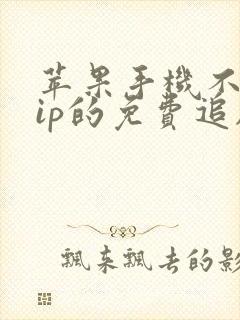 苹果手機不
ip的免費追
飄來飄去的影